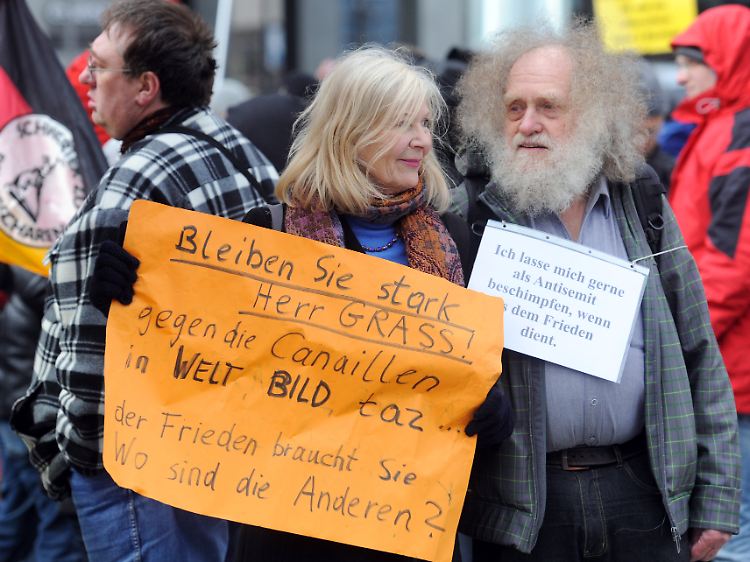 Bleiben Sie stark
Herr GRASS!
gegen die Canaillen
in WELT BILD, taz...
der Frieden braucht Sie
Wo sind die Anderen?
Ich lasse mich gerne
als Antisemit
beschimpfen, wenn
dem Frieden
dient.